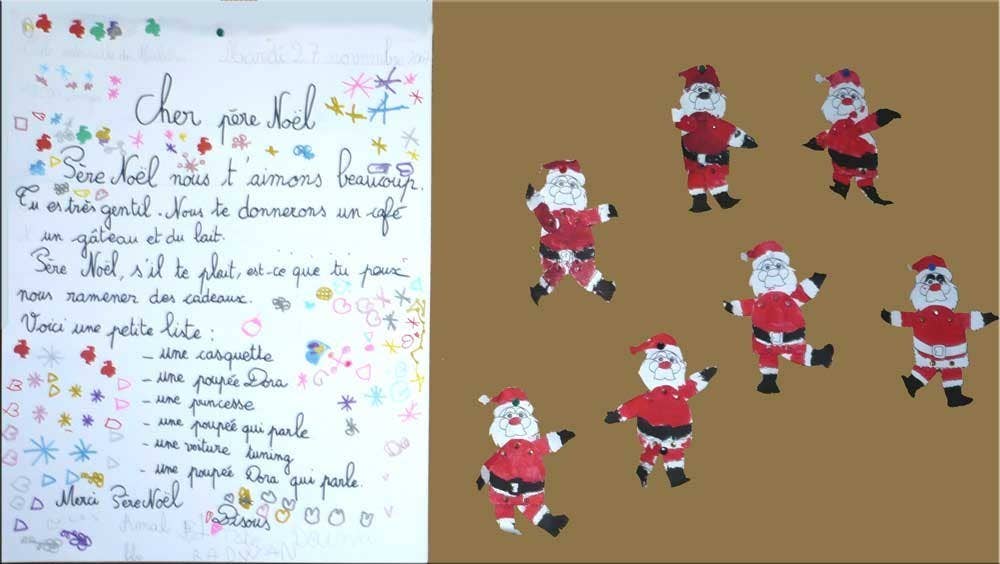 Mardi 27 novembre
Cher père Noël
Père Noël nous t'aimons beaucoup.
Tu es très gentil. Nous te donnerons un café
un gâteau et du lait.
Père Noël, s'il te plait, est-ce que tu peux
nous ramener des cadeaux.
Voici une petite liste :
- une casquette
- une poupée Dora
- une princesse
- une poupée qui parle
- une voiture tuning
- une poupée Dora qui parle.
Merci Père Noël
Bisous
Amal
RADWAN